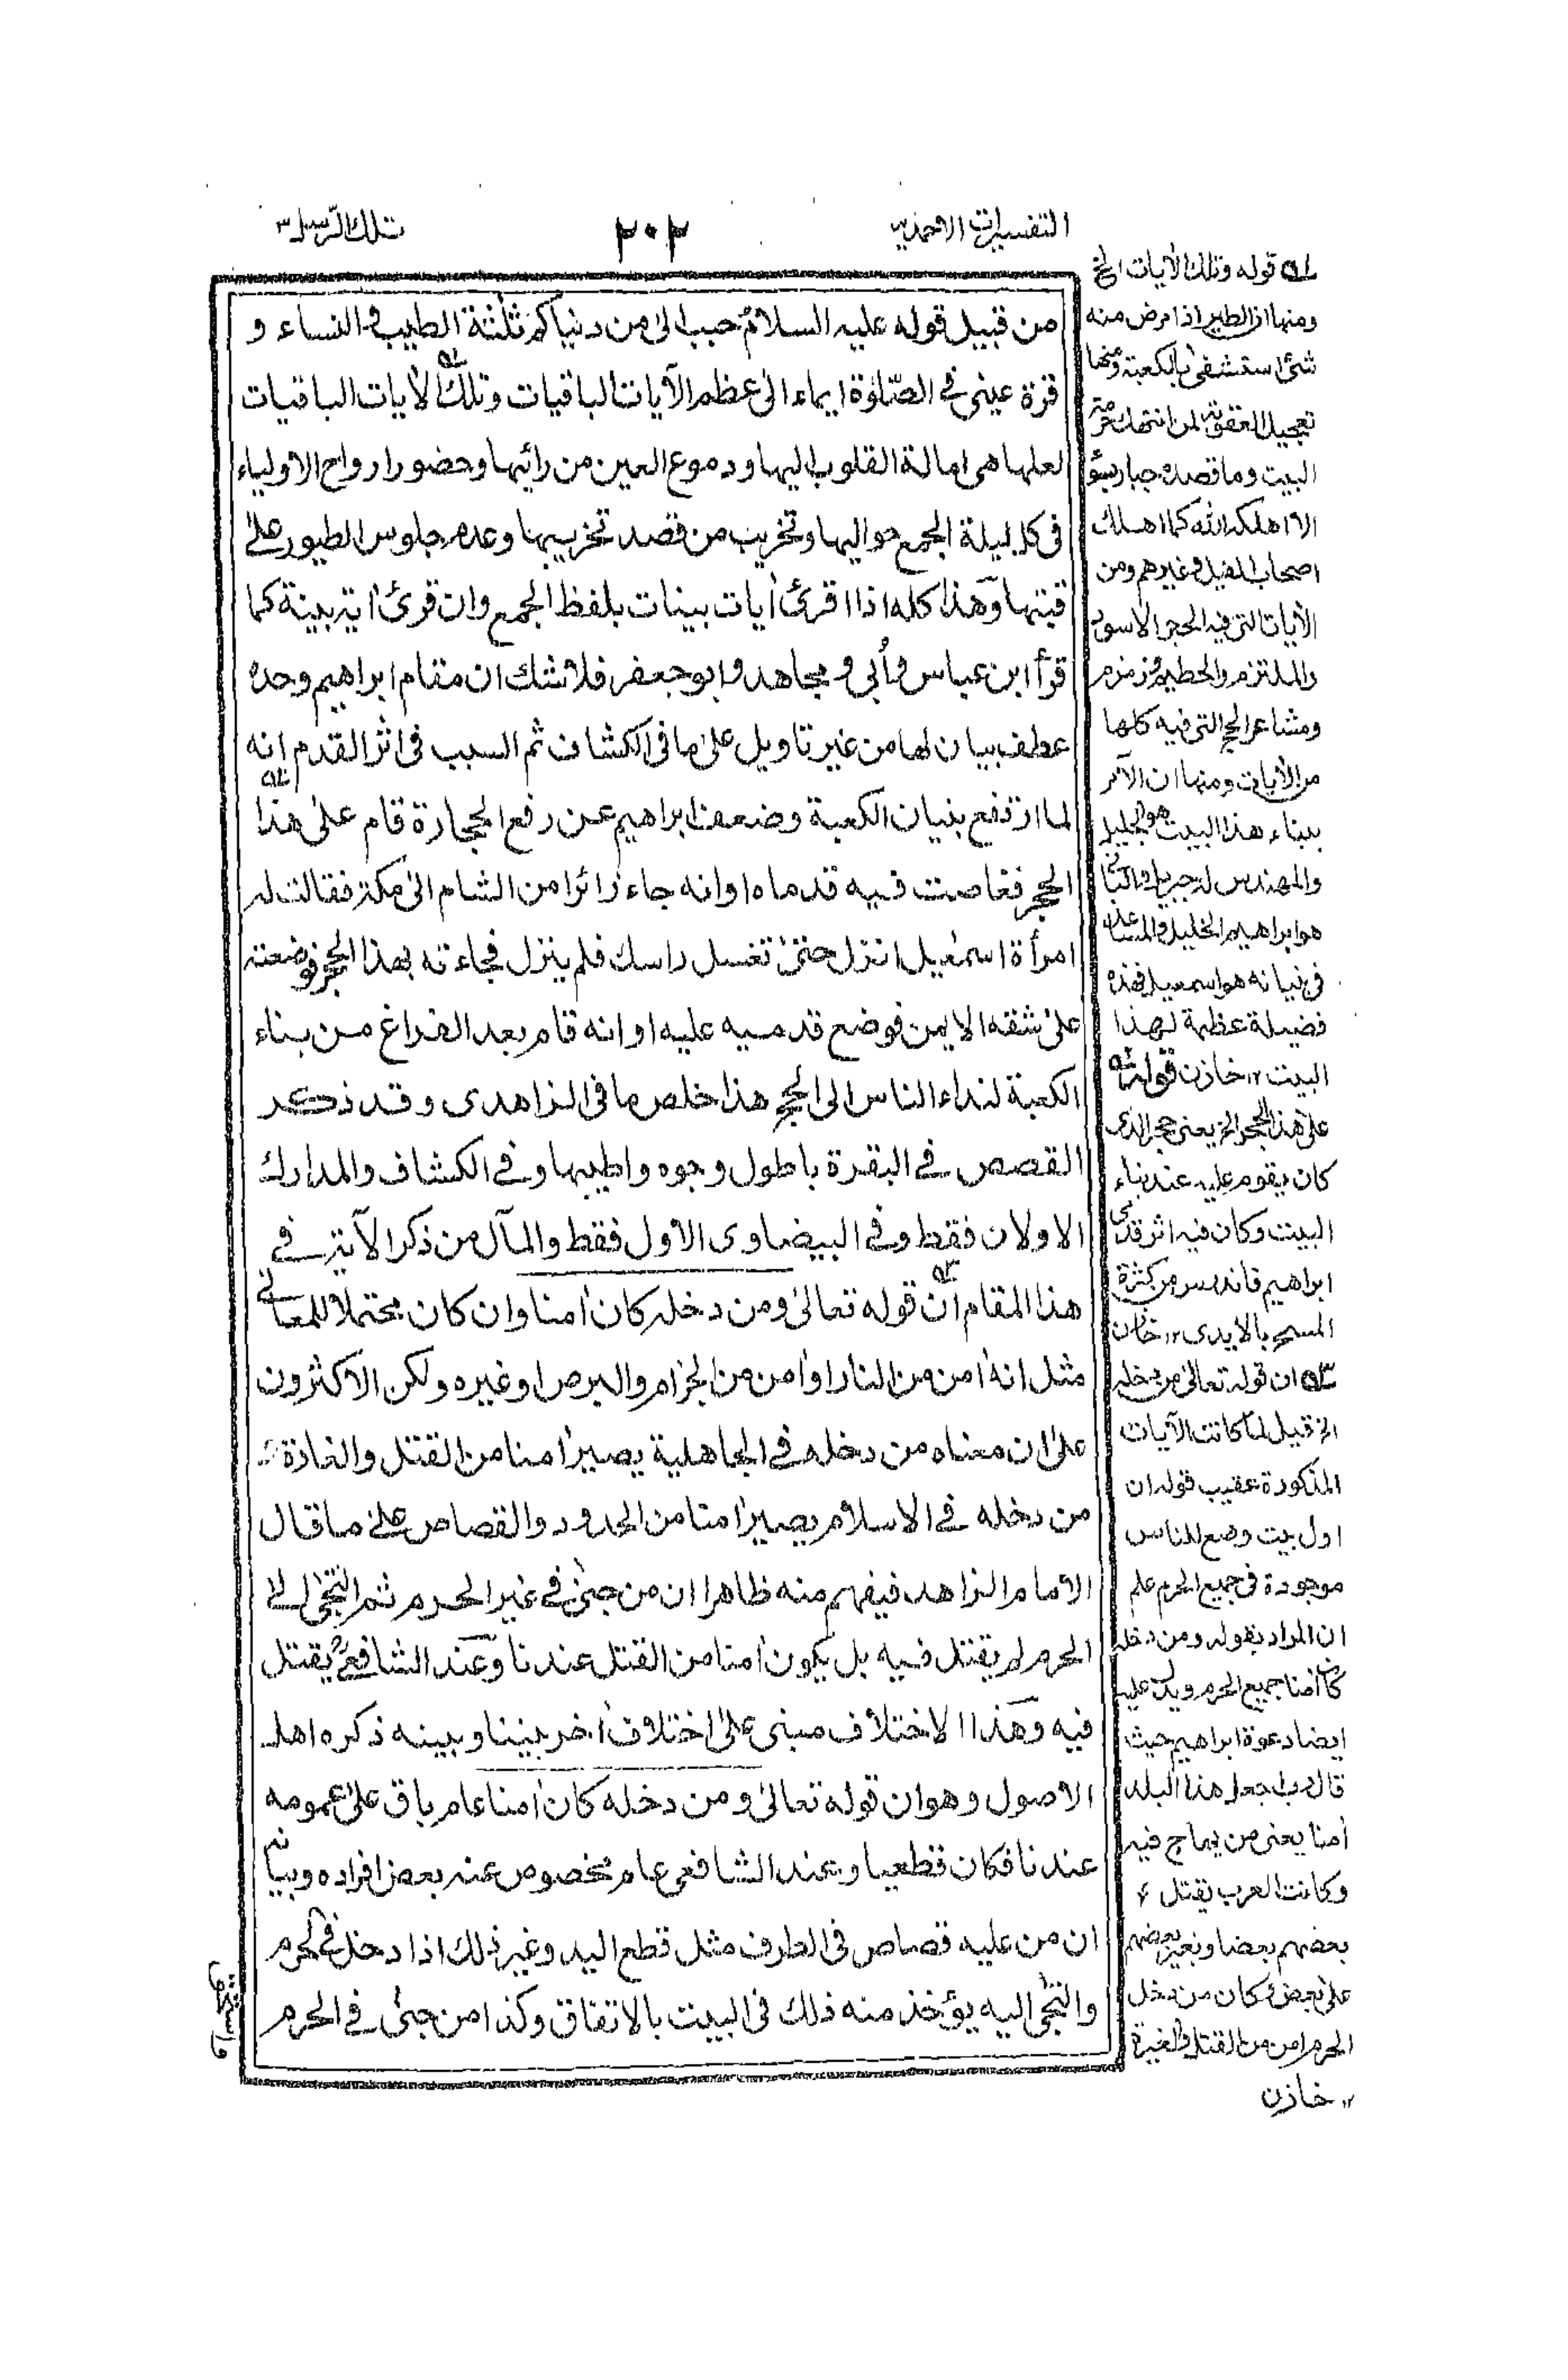 التفسيرات الاحمديه
٢٠٢
تلك الرسل ٣
من قبيل قوله عليه السلام حبب الى من دنياكم ثلثة الطيب و النساء و
قرة عينى فى الصلوة ايماء الى عظم الآيات الباقيات وتلك الأيات الباقيات
لعلها هى امالة القلوب اليها ودموع العين من رائيها وحضور ارواح الاولياء
فى كل ليلة الجمع حواليها وتخريب من قصد تخريبها وعدم جلوس الطيور على
قبتها وهذا كله اذا اقرئ أيات بينات بلفظ الجمع وان قرئ أية بينة كما
قرأ ابن عباس وأبى ومجاهد وابو جعفر فلا شك ان مقام ابراهيم وحده
عطف بيان لها من غير تاويل على ما فى الكشاف ثم السبب فى اثر القدم انه
لما ارتفع بنيان الكعبة وضعف ابراهيم عن رفع الحجارة قام على هذا
الحجر فغاصت فيه قدماه او انه جاء زائرا من الشام الى مكة فقالت له
امرأة اسمعيل انزل حتى تغسل راسك فلم ينزل فجاءته بهذا الحجر فوضعته
على شقه الايمن فوضع قدميه عليه او انه قام بعد الفراغ من بناء
الكعبة لنداء الناس الى الحج هذا خلص ما فى الزاهدى وقد ذكر
القصص فى البقرة باطول وجوه واطيبها وفى الكشاف والمدارك
الاولان فقط وفى البيضاوى الاول فقط والمآل من ذكر الآية فى
هذا المقام ان قوله تعالى ومن دخله كان أمنا وان كان محتملا للمعانى
مثل انه أمن من النار او أمن من الجزام والبرص او غيره ولكن الاكثرون
على ان معناه من دخله فى الجاهلية يصير أمنا من القتل والغارة
من دخله فى الاسلام يصير أمنا من الحدود والقصاص على ما قال
الامام الزاهد فيفهم منه ظاهرا ان من جنى فى غير الحرم ثم التجى الى
الحرم لم يقتل فيه بل يكون أمنا من القتل عندنا وعند الشافعى يقتل
فيه وهذا الاختلاف مبنى على اختلاف أخر بيننا وبينه ذكره اهل
الاصول وهو ان قوله تعالى ومن دخله كان أمنا عام باق على عمومه
عندنا فكان قطعيا وعند الشافعى عام مخصوص عنه بعض افراده وبيانه
ان من عليه قصاص فى الطرف مثل قطع اليد وغير ذلك اذا دخل فى الحرم
والتجى اليه يؤخذ منه ذلك فى البيت بالاتفاق وكذا من جنى فى الحرم
قوله وتلك الأيات الخ
ومنها ان الطير اذا مرض منه
شئ استشفى بالكعبة ومنها
تعجيل العقوبة لمن انتهك حرمة
البيت وما قصده جبار بسوء
الا اهلكه الله كما اهلك
اصحاب الفيل وغيرهم ومن
الأيات التى فيه الحجر الاسود
والملتزم والحطيم وزمزم
ومشاعر الحج التى فيه كلها
من الأيات ومنها ان الآمر
ببناء هذا البيت هو الجليل
والمهندس له جبريل والبانى
هو ابراهيم الخليل والمساعد
فى بنيانه هو اسمعيل فهذه
فضيلة عظيمة لهذا
البيت ١٢ خازن قوله
على هذا الحجر الخ يعنى حجر الذى
كان يقوم عليه عند بناء
البيت وكان فيه اثر قدمى
ابراهيم فاندرس من كثرة
المسح بالايدى ١٢ خازن
ان قوله تعالى من دخله
الخ قيل لما كانت الآيات
المذكورة عقيب قوله ان
اول بيت وضع للناس
موجودة فى جميع الحرم علم
ان المراد بقوله ومن دخله
كان أمنا جميع الحرم ويدل عليه
ايضا دعوة ابراهيم حيث
قال رب اجعل هذا البلد
أمنا يعنى من يهاج فيه
وكانت العرب يقتل
بعضهم بعضا ويغير بعضهم
على بعض وكان من دخل
الحرم امن من القتل والغيرة
١٢ خازن